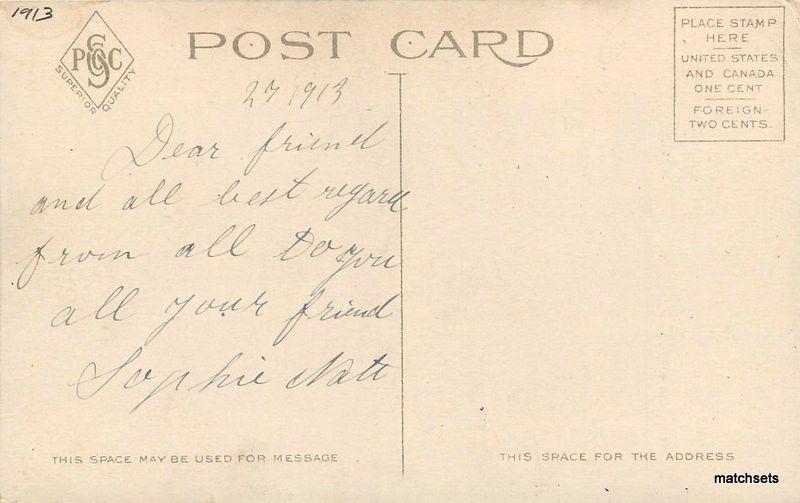 1913
PGSCO
SUPERIOR QUALITY
POST CARD
PLACE STAMP
HERE
UNITED STATES
AND CANADA
ONE CENT
FOREIGN-
TWO CENTS.
27 1913
Dear friend
and all best regard
from all to you
all your friend
Sophie Natt
THIS SPACE MAY BE USED FOR MESSAGE
THIS SPACE FOR THE ADDRESS
matchsets